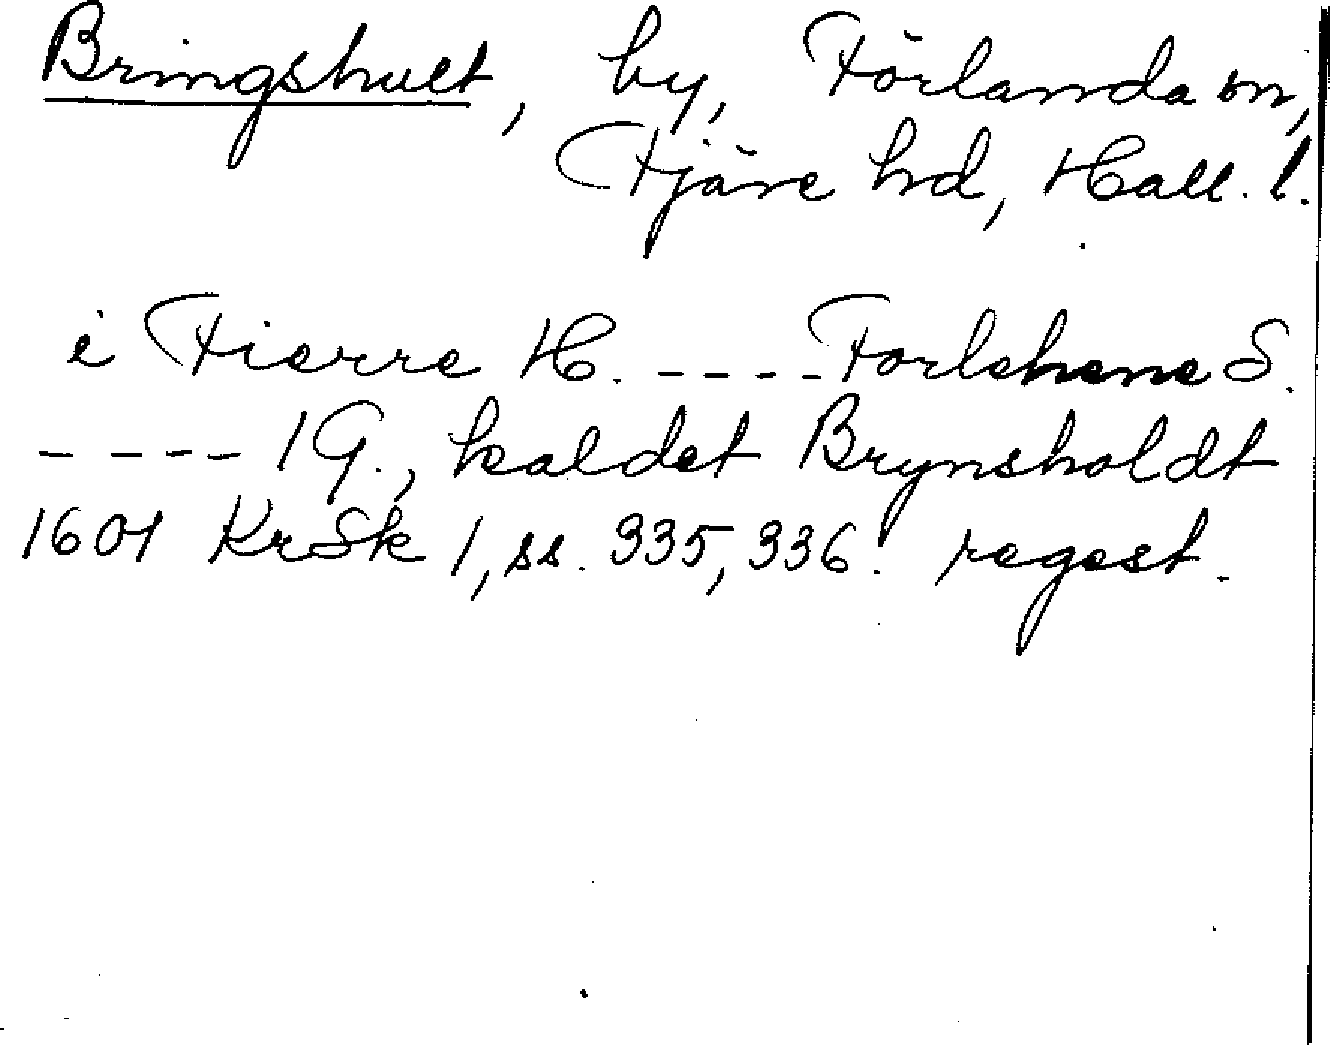 Bringshult, by, Förlanda sn,
Fjäre hd, Hall. l.
i Fierre H. ---- Forlehene S.
---- 1 G., kaldet Brynsholdt
1601 KrSk 1, ss. 335, 336. regest.